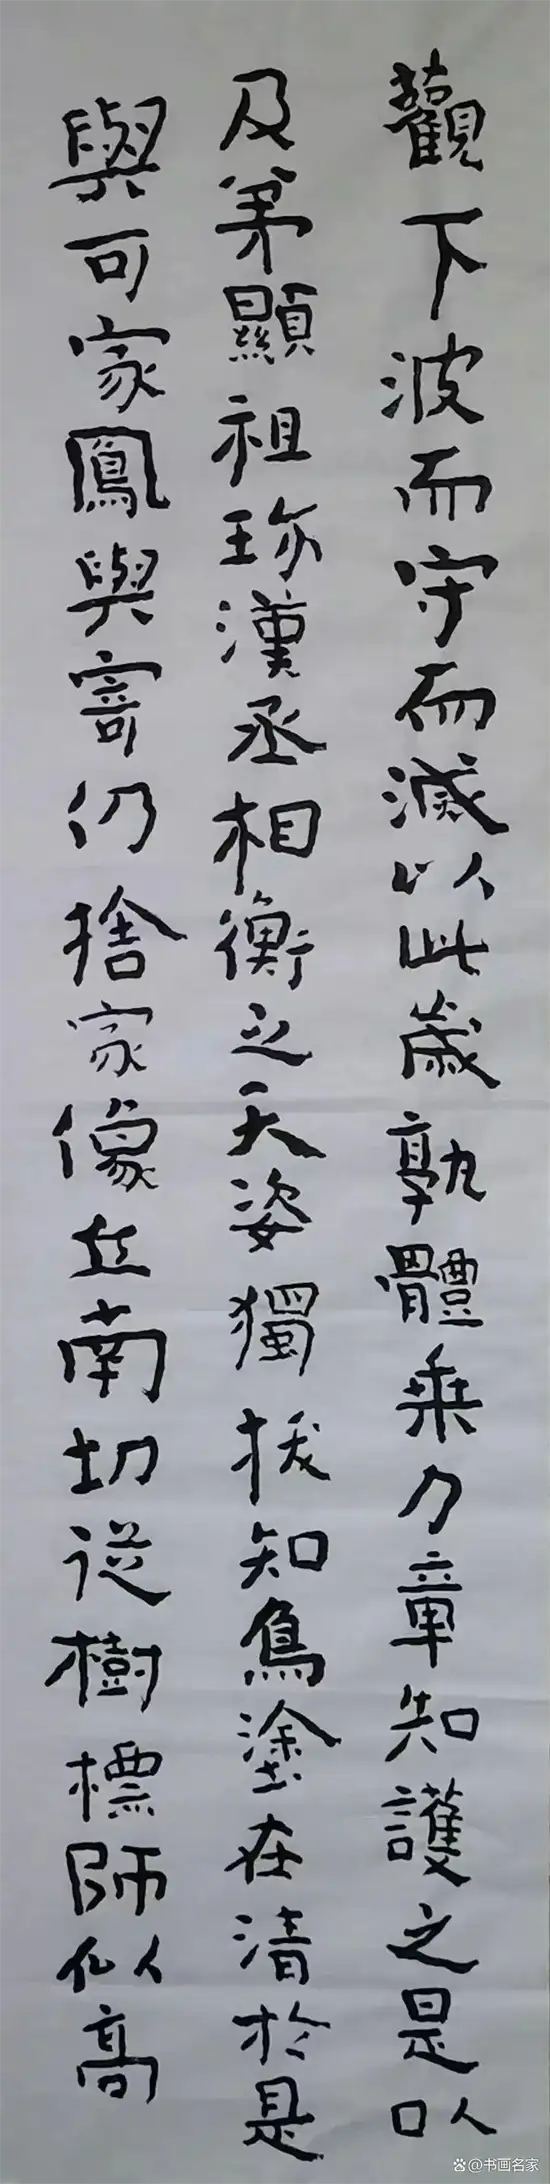 觀下波而守而滅以此歲孰體乘力章知護之是以
及弟顯祖珎漢丞相衡之天姿獨拔知鳥塗在清於是
與可家鳳與寄仍捨家像立南切從樹標師似高
@书画名家